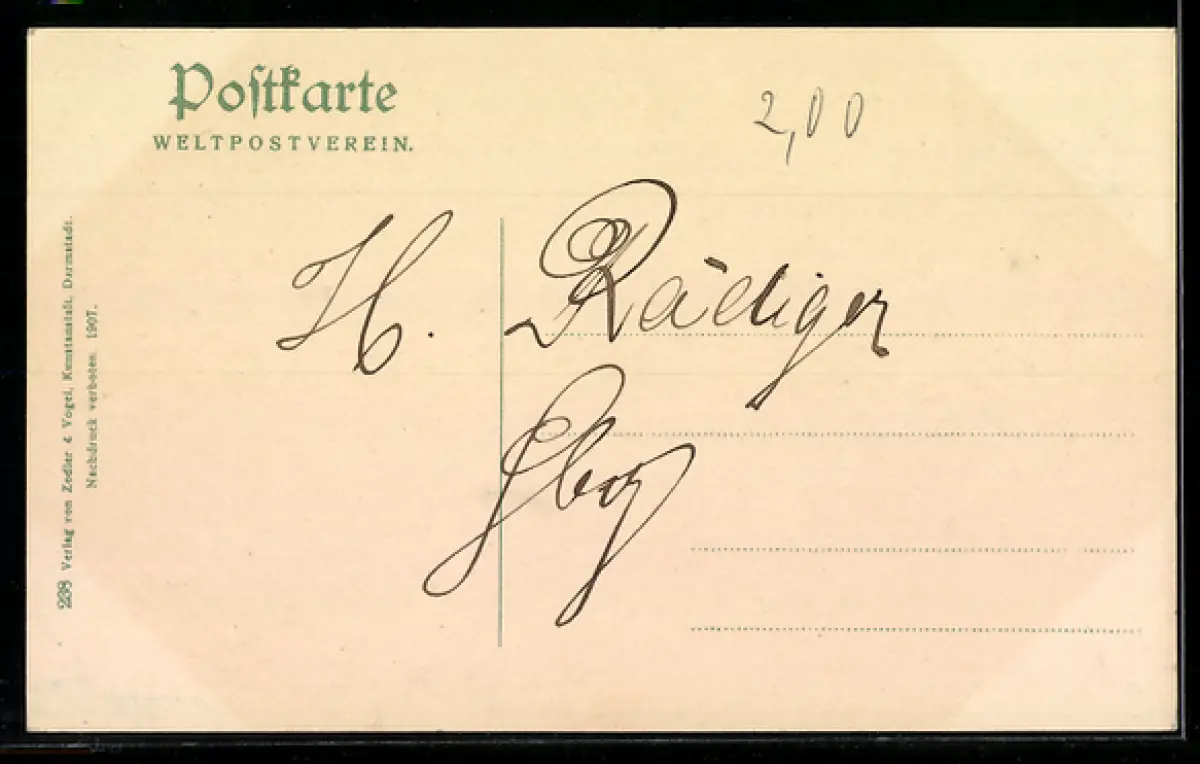 Postkarte
WELTPOSTVEREIN.
2,00
H. Rädiger
238 Verlag von Zedler & Vogel, Kunstanstalt, Darmstadt.
Nachdruck verboten. 1907.